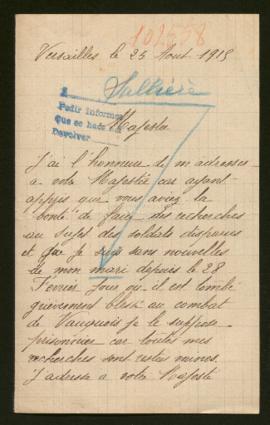 102558
Versailles le 25 Aout 1915
Pedir informes
que se hace
Devolver
Majesté
J'ai l'honneur de m adresser
a votre Majesté car ayant
appris que vous aviez la
bonté de faire des recherches
au sujet des soldats disparus
et que je suis sans nouvelles
de mon mari depuis le 28
Fevrier Jour ou il est tombé
grièvement blessé au combat
de Vauquois je le suppose
prisonnier car toutes mes
recherches sont restes
J'adresse a votre Majesté